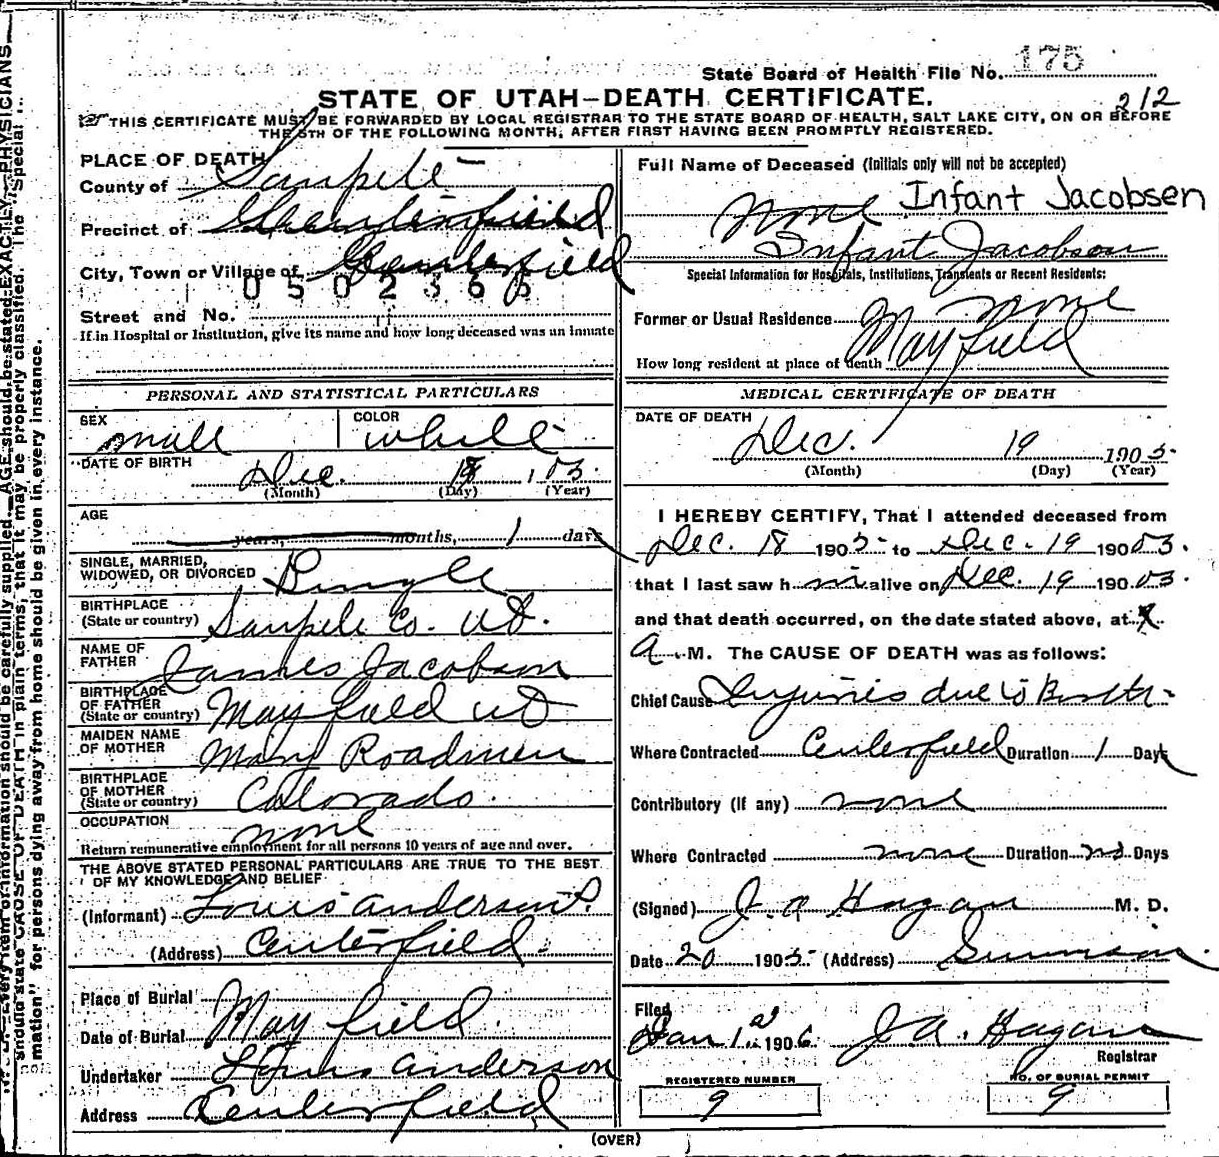 State Board of Health File No. 175
STATE OF UTAH—DEATH CERTIFICATE.
212
THIS CERTIFICATE MUST BE FORWARDED BY LOCAL REGISTRAR TO THE STATE BOARD OF HEALTH, SALT LAKE CITY, ON OR BEFORE
THE 5TH OF THE FOLLOWING MONTH, AFTER FIRST HAVING BEEN PROMPTLY REGISTERED.
PLACE OF DEATH
County of Sanpete
Precinct of Centerfield
City, Town or Village of Centerfield
0502366
Street and No.
If in Hospital or Institution, give its name and how long deceased was an inmate
Full Name of Deceased (Initials only will not be accepted)
None Infant Jacobsen
Infant Jacobson
Special Information for Hospitals, Institutions, Transients or Recent Residents:
none
Former or Usual Residence Mayfield
How long resident at place of death
PERSONAL AND STATISTICAL PARTICULARS
SEX male COLOR white
DATE OF BIRTH Dec. 18 1 05.
(Month) (Day) (Year)
AGE
years, months, 1 days
SINGLE, MARRIED,
WIDOWED, OR DIVORCED Single
BIRTHPLACE
(State or country) Sanpete Co. Ut.
NAME OF
FATHER James Jacobson
BIRTHPLACE
OF FATHER
(State or country) Mayfield Ut
MAIDEN NAME
OF MOTHER Mary Roadmen
BIRTHPLACE
OF MOTHER
(State or country) Colorado.
OCCUPATION none
Return remunerative employment for all persons 10 years of age and over.
THE ABOVE STATED PERSONAL PARTICULARS ARE TRUE TO THE BEST
OF MY KNOWLEDGE AND BELIEF
(Informant) Louis Anderson
(Address) Centerfield.
Place of Burial Mayfield.
Date of Burial
Undertaker Louis Anderson
Address Centerfield
MEDICAL CERTIFICATE OF DEATH
DATE OF DEATH
Dec. 19 1905.
(Month) (Day) (Year)
I HEREBY CERTIFY, That I attended deceased from
Dec. 18 1905 to Dec. 19 19005.
that I last saw h im alive on Dec. 19 19005.
and that death occurred, on the date stated above, at
a. M. The CAUSE OF DEATH was as follows:
Chief Cause Injuries due to Birth
Where Contracted Centerfield Duration 1 Days
Contributory (if any) none
Where Contracted none Duration no Days
(Signed) J. A Hagan M. D.
Date 20 1905 (Address) Gunnison.
Filed
Jan 1 1906 J. A. Hagan
Registrar
REGISTERED NUMBER
9
NO. OF BURIAL PERMIT
9
(OVER)
Every item of information should be carefully supplied. AGE should be stated EXACTLY. PHYSICIANS
should state CAUSE OF DEATH in plain terms, that it may be properly classified. The "Special
mation" for persons dying away from home should be given in every instance.